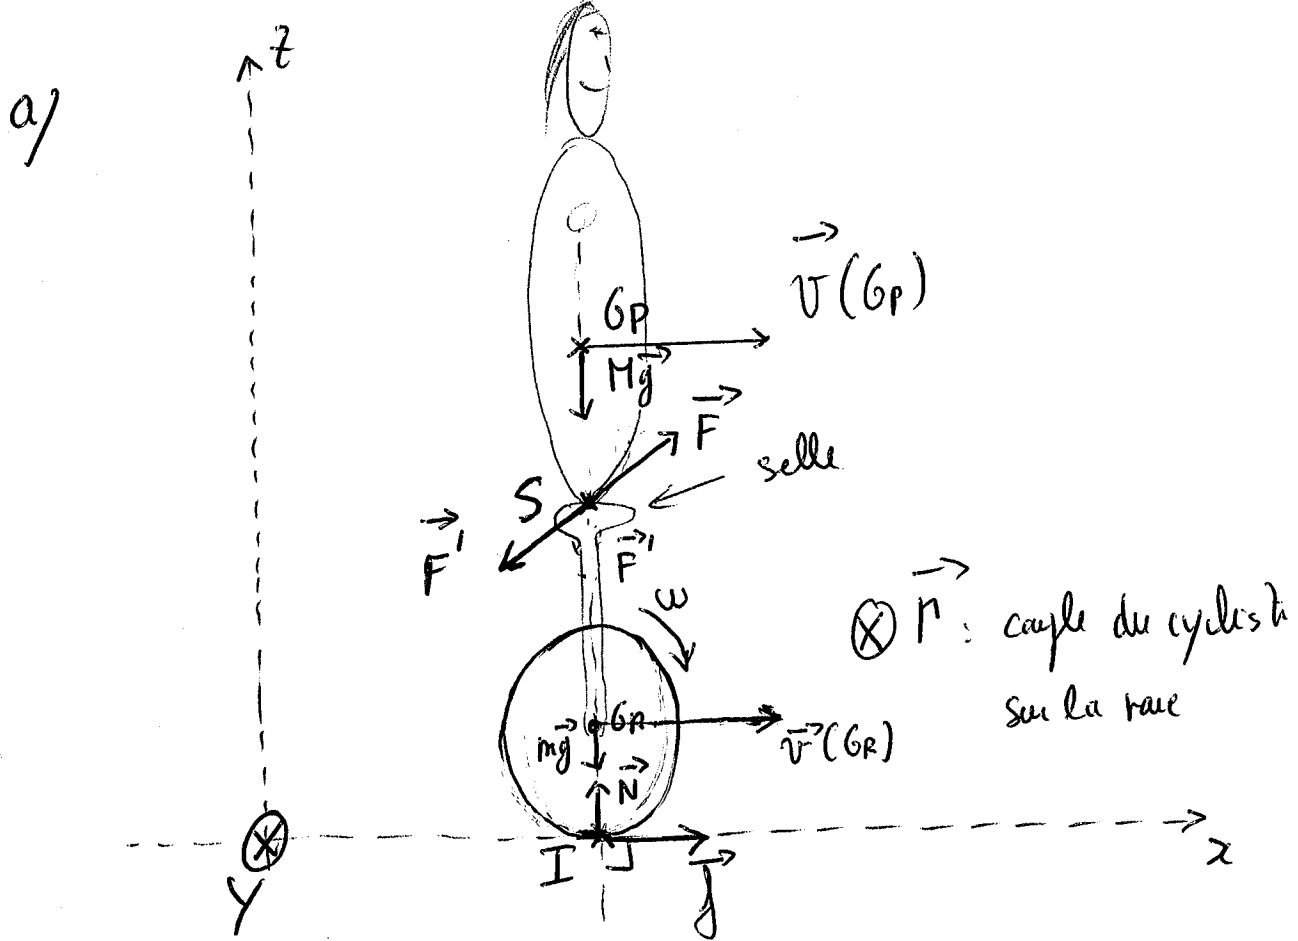 z
a/
v⃗(GP)
GP
Mg⃗
F⃗
selle
S
F⃗'
F⃗'
ω
⊗ Γ⃗ : couple du cycliste
sur la roue
GR
mg⃗
v⃗(GR)
N⃗
I
x
Y
f⃗